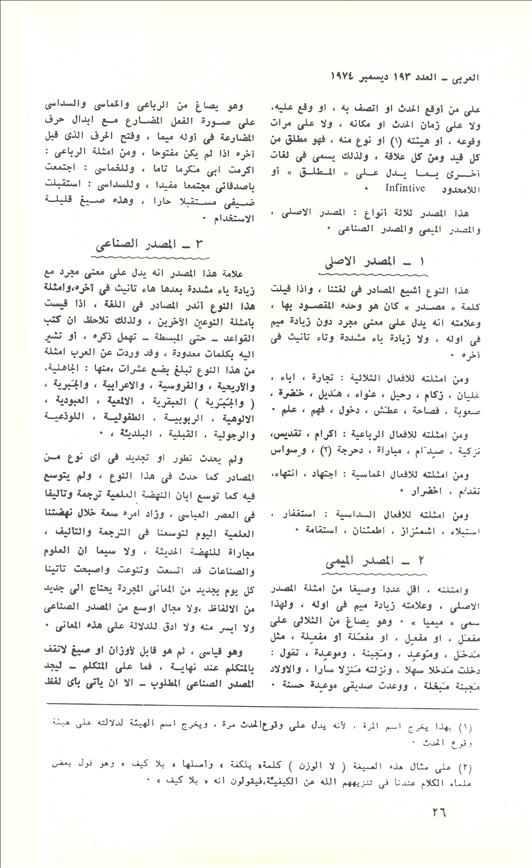 العربي – العدد ١٩٣ ديسمبر ١٩٧٤
على من أوقع الحدث او اتصف به ، او وقع عليه،
ولا على زمان الحدث او مكانه ، ولا على مرات
وقوعه ، أو هيئته (١) او نوع منه ، فهو مطلق من
كل قيد ومن كل علاقة ، ولذلك يسمى في لغات
أخرى بما يدل على « المطلق » أو
اللامحدود Infintive ٠
هذا المصدر ثلاثة أنواع : المصدر الاصلي ،
والمصدر الميمى والمصدر الصناعي ٠
١ – المصدر الاصلى
هذا النوع أشيع المصادر في لغتنا ، واذا قيلت
كلمة « مصدر » كان هو وحده المقصود بها ،
وعلامته انه يدل على معنى مجرد دون زيادة ميم
في اوله ، ولا زيادة ياء مشددة وتاء تانيث في
آخره ٠
ومن امثلته للافعال الثلاثية : تجارة ، اباء ،
غليان ، زكام ، رحيل ، عنواء ، هديل ، خضرة ،
صعوبة ، فصاحة ، عطش ، دخول ، فهم ، علم ٠
ومن امثلته للافعال الرباعية : اكرام ، تقديس،
تزكية ، صيدام ، مباراة ، دحرجة (٢) ، ووسواس
ومن امثلته للافعال الخماسية : اجتهاد ، انتهاء،
تقدم ، اخضرار ٠
ومن امثلته للافعال السداسية : استغفار ،
استيلاء ، اشمئزاز ، اطمئنان ، استقامة ٠
٢ – المصدر الميمى
وامثلته ، اقل عددا وصيغا من امثلة المصدر
الاصلى ، وعلامته زيادة ميم في اوله ، ولهذا
سمى « ميميا » ٠ وهو يصاغ من الثلاثي على
مفعل ، او مفعل ، او مفعلة او مفعيلة ، مثل
مدخل ، وموعد ، ومجبنة ، وموعدة ، تقول :
دخلت مدخلا سهلا ، ونزلته منزلا سارا ، والاولاد
مجبنة مبخلة ، ووعدت صديقي موعدة حسنة ٠
وهو يصاغ من الرباعى والخماسى والسداسى
على صورة الفعل المضارع مع ابدال حرف
المضارعة في أوله ميما ، وفتح الحرف الذى قبل
آخره اذا لم يكن مفتوحا ، ومن امثلة الرباعى :
اكرمت ابى مكرما تاما ، وللخماسى : اجتمعت
باصدقائى مجتمعا مفيدا ، وللسداسى : استقبلت
ضيفى مستقبلا حارا ، وهذه صيغ قليلة
الاستخدام ٠
٣ – المصدر الصناعى
علامة هذا المصدر انه يدل على معنى مجرد مع
زيادة ياء مشددة بعدها هاء تانيث في آخره،وامثلة
هذا النوع أندر المصادر في اللغة ، اذا قيست
بأمثلة النوعين الآخرين ، ولذلك نلاحظ ان كتب
القواعد – حتى المبسطة – تهمل ذكره ، أو تشير
اليه بكلمات معدودة ، وقد وردت عن العرب امثلة
من هذا النوع تبلغ بضع عشرات ،منها : الجاهلية،
والأريحية ، والفروسية ، والاعرابية ، والجبرية ،
( والجبرية ) العبقرية ، الالمعية ، العبودية ،
الالوهية ، الربوبية ، الطفولية ، اللوذعية
والرجولية ، القبلية ، البلدية ، ٠
ولم يحدث تطور او تجديد فى اى نوع من
المصادر كما حدث فى هذا النوع ، ولم يتوسع
فيه كما توسع ابان النهضة العلمية ترجمة وتاليفا
في العصر العباسى ، وزاد امره سعة خلال نهضتنا
العلمية اليوم لتوسعنا فى الترجمة والتاليف ،
مجاراة للنهضة الحديثة ، ولا سيما ان العلوم
والصناعات قد اتسعت وتنوعت واصبحت تاتينا
كل يوم بجديد من المعاني المجردة يحتاج الى جديد
من الالفاظ ،ولا مجال اوسع من المصدر الصناعى
ولا ايسر منه ولا ادق للدلالة على هذه المعاني ٠
وهو قياسى ، ثم هو قابل لأوزان او صيغ لاتقف
بالمتكلم عند نهاية ، فما على المتكلم – ليجد
المصدر الصناعى المطلوب – الا ان ياتى باى لفظ
(١) بهذا يخرج اسم المرة ، لأنه يدل على وقوع الحدث مرة ، ويخرج اسم الهيئة لدلالته على هيئة
وقوع الحدث ٠
(٢) على مثال هذه الصيغة ( لا الوزن ) كلمة« بلكفة » وأصلها « بلا كيف » وهو قول بعض
علماء الكلام عندنا في تنزيههم الله عن الكيفية،فيقولون انه « بلا كيف » ٠
٢٦